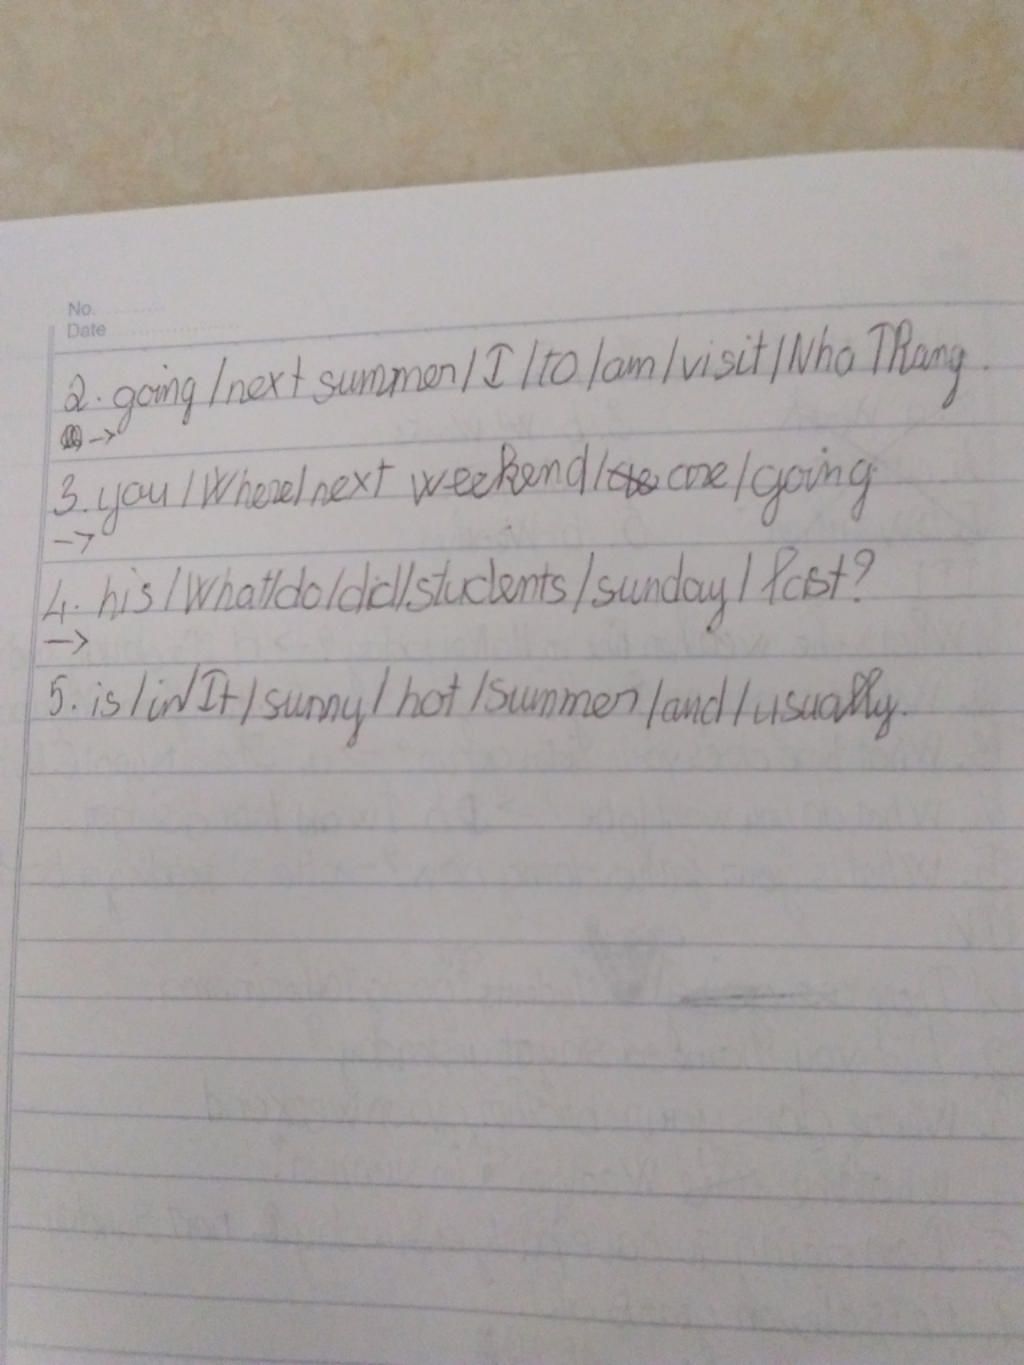 No.
Date
2. going / next summer / I / to / am / visit / Nha TRang.
→
3. you / Where / next weekend / are / going
→
4. his / What / do / did / students / sunday / Past?
→
5. is / in / It / sunny / hot / summer / and / usually.